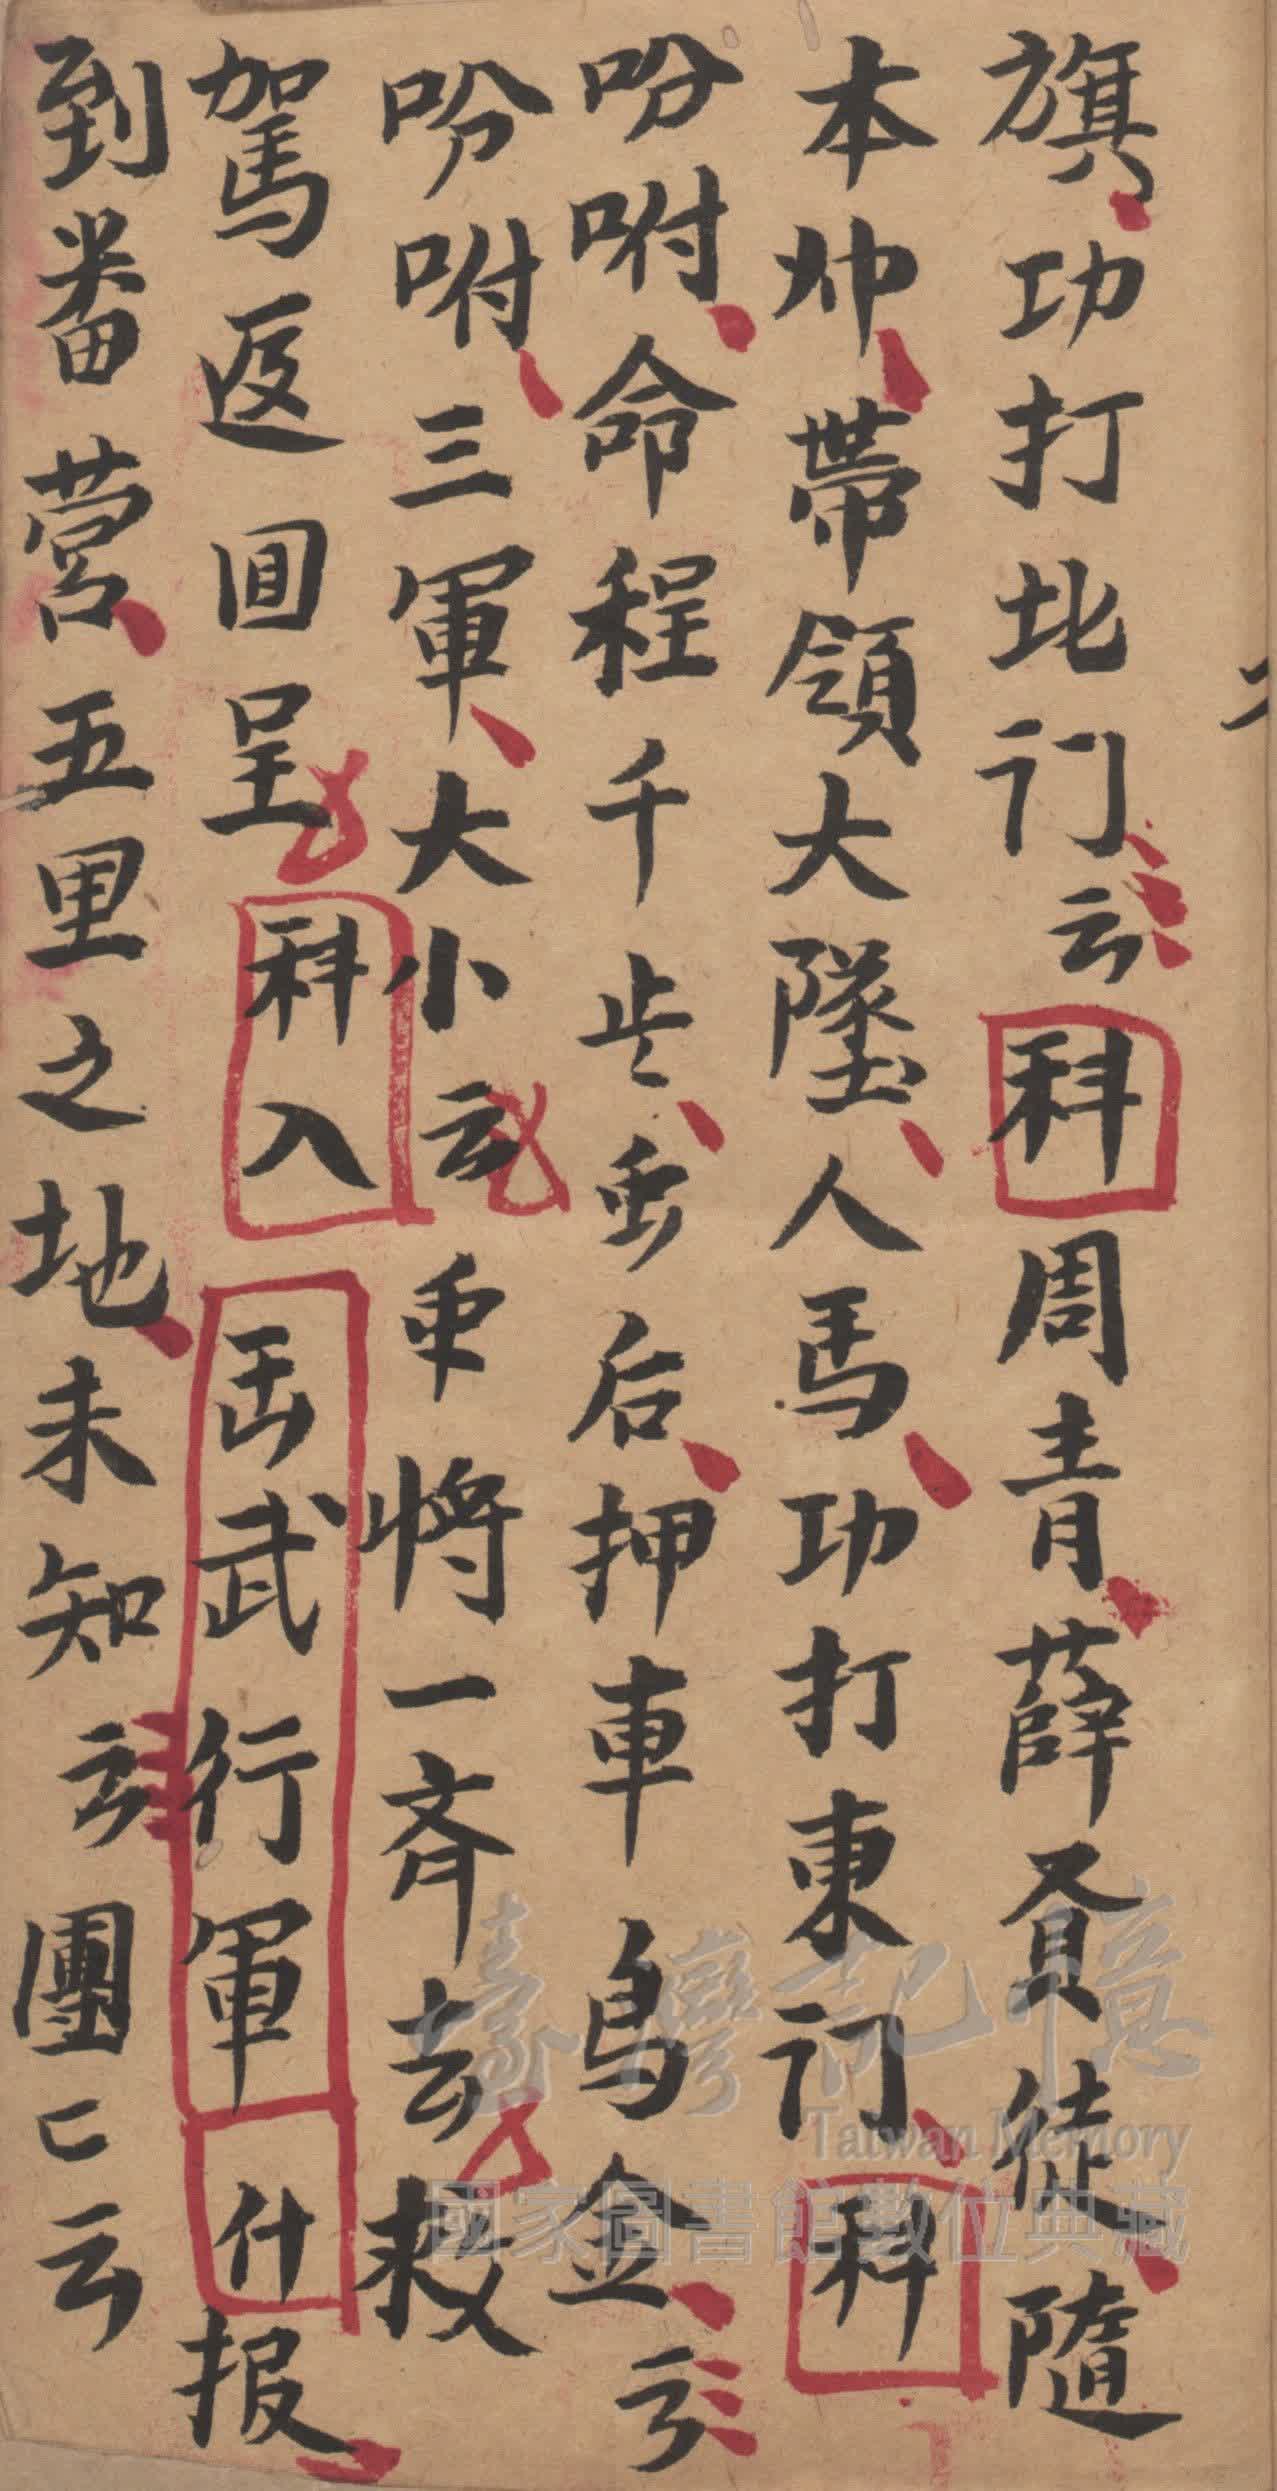 旗功打北门云科周青薛贤徒隨
本帅帶領大墜人馬功打東门科
吩咐命程千歩后押車鳥金云
吩咐三軍大小云秉將一斉去救
駕返回呈科入武行軍什报
到番营五里之地未知云團匕云
臺灣記憶
Taiwan Memory
國家圖書館數位典藏